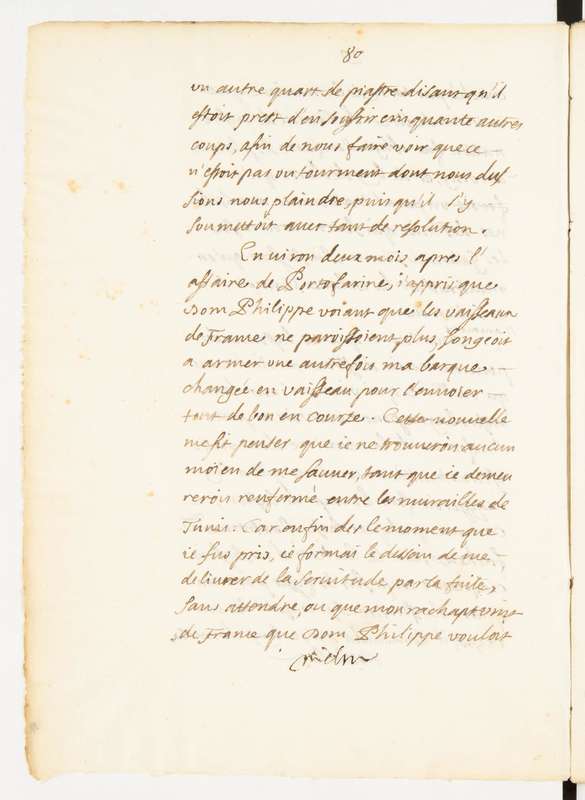 80
un autre quart de piastre disant qu'il
estoit prest d'en souffrir cinquante autres
coups, afin de nous faire voir que ce
n'estoit pas un tourment dont nous dus
sions nous plaindre, puis qu'il s'y
soumettoit avec tant de resolution.
Environ deux mois apres l'
affaire de Portofarine, i'appris que
Dom Philippe voiant que les vaisseaux
de France ne paroissoient plus, songeoit
a armer une autrefois ma barque
changée en vaisseau pour l'envoier
tout de bon en course. Cette nouvelle
me fit penser que ie ne trouverois aucun
moïen de me sauver, tant que ie demeu
rerois renfermé entre les murailles de
Tunis: Car enfin des le moment que
ie fus pris, ie formai le dessein de me
delivrer de la servitude par la fuite,
sans attendre, ou que mon rachapt vint
de France que Dom Philippe vouloit